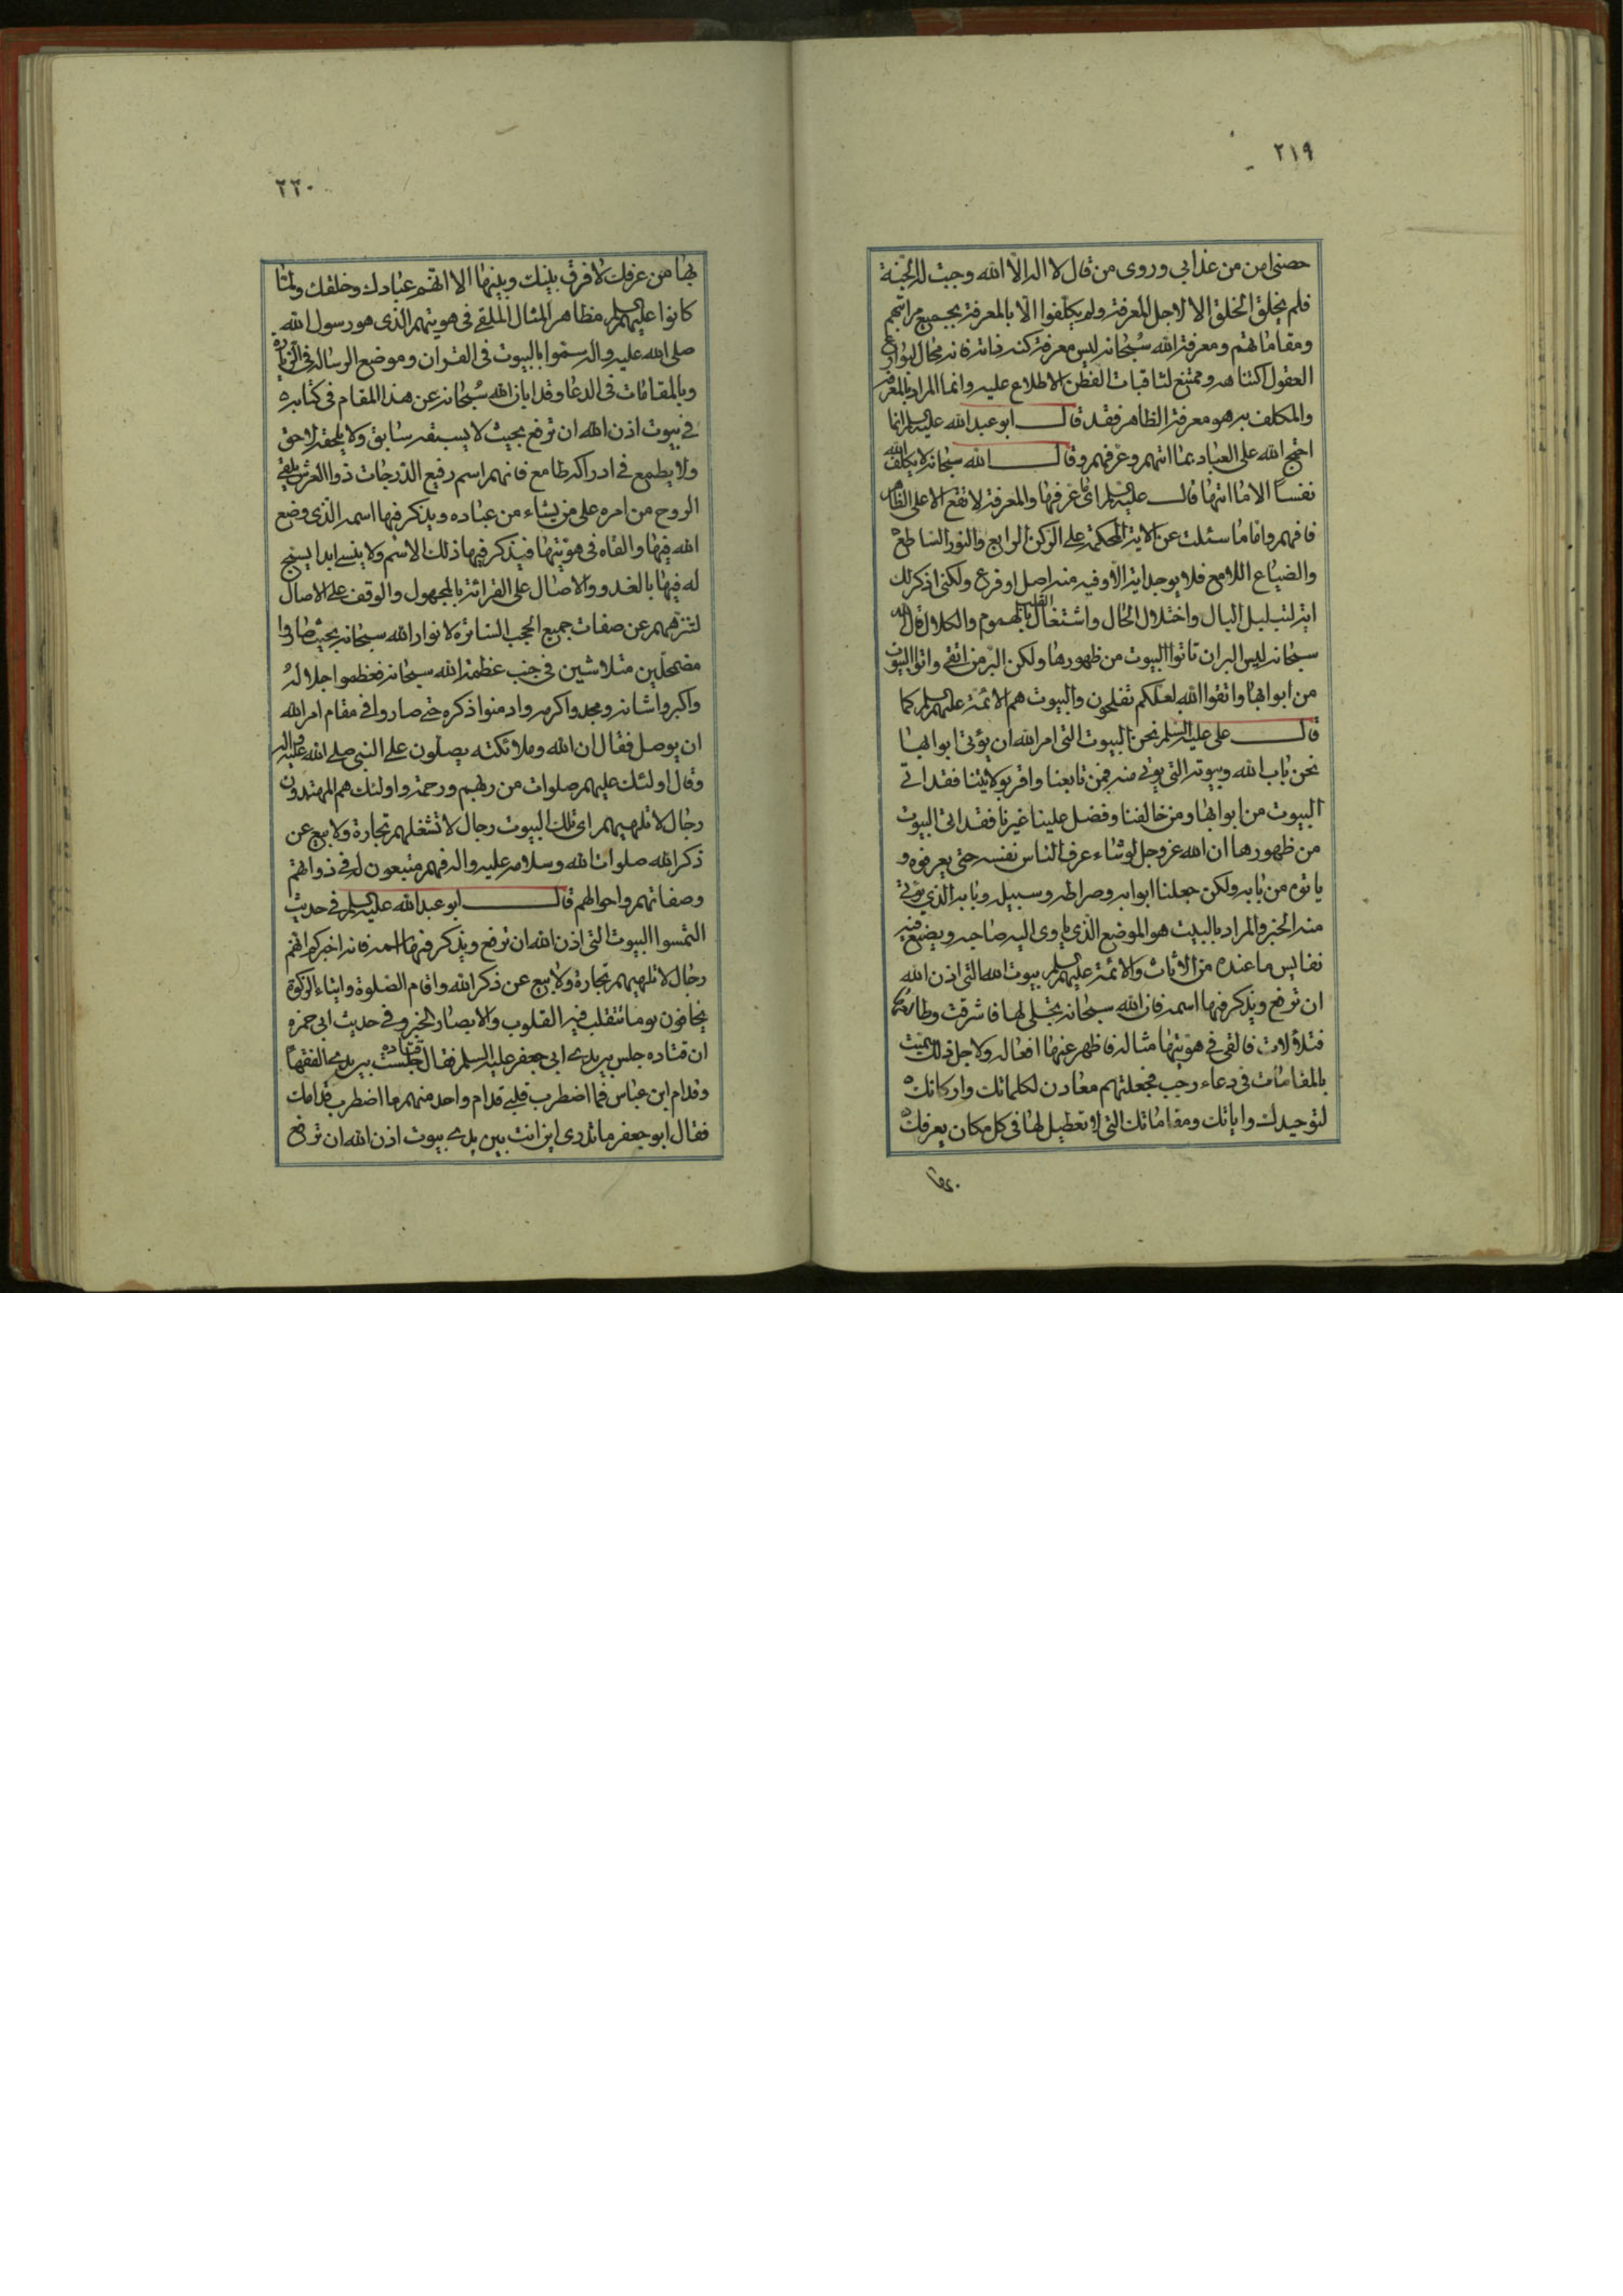 ٢١٩
حصنی امن من عذابی وروی من قال لا اله الّا الله وجبت له الجنّة
فلم یخلق الخلق الا لاجل المعرفة ولم یکلّفوا الّا بالمعرفة بجمیع مراتبهم
ومقاماتهم ومعرفة الله سُبحانه لیس معرفة کنه ذاته فانه محال لبوادع
العقول اکتناهه وممتنع لثاقبات الفطن الاطلاع علیه وانما المراد بالمعرفة
والمکلف به هو معرفة الظاهر فقد قال ابو عبد الله علیه السلم انما
احتج الله علی العباد بما اتیهم وعرفهم وقال الله سبحانه لا یکلف الله
نفساً الا ما اتیها قال علیه السلم ای ما عرفها والمعرفة لا تقع الا علی الظاهر
فافهم واما ما سئلت عن الایة المحکمة علی الرکن الرابع والنور الساطع
والضیاع اللامع فلا یوجد ایة الّا وفیه منه اصل او فرع ولکنی اذکر لک
ایة لتبلبل البال واختلال الحال واشتغال القلب بالهموم والکلال قال الله
سبحانه لیس البر ان تاتوا البیوت من ظهورها ولکن البّر من اتقی واتوا البیوت
من ابوابها واتقوا الله لعلکم تفلحون والبیوت هم الائمة علیهم السلم کما
قال علی علیه السلم نحن البیوت التی امر الله ان یؤتی ابوابها
نحن باب الله وبیوته التی یؤتی منه فمن تابعنا واقر بولایتنا فقد اتی
البیوت من ابوابها ومن خالفنا وفضل علینا غیرنا فقد اتی البیوت
من ظهورها ان الله عز وجل لو شاء عرف الناس نفسه حتی یعرفوه و
یاتوه من بابه ولکن جعلنا ابوابه وصراطه وسبیله وبابه الذی یؤتی
منه الخبر والمراد بالبیت هو الموضع الّذی یاوی الیه صاحبه ویضع فیه
نفایس ما عنده من الاثاث والائمة علیهم السلم بیوت الله التی اذن الله
ان ترفع ویذکر فیها اسمه فان الله سبحانه تجلی لها فاشرقت وطالعها
فتلألات فالقی فی هویتها مثاله فاظهر عنها افعاله ولاجل ذلک سمیت
بالمقامات فی دعاء رجب فجعلتهم معادن لکلماتک وارکانا
لتوحیدک وایاتک ومقاماتک التی لا تعطیل لها فی کل مکان یعرفک
بها
٢٢٠
بها من عرفک لا فرق بینک وبینها الا انهم عبادک وخلقک ولمّا
کانوا علیهم السلم مظاهر المثال الملقی فی هویتهم الذی هو رسول الله
صلی الله علیه واله سمّوا بالبیوت فی القران وموضع الرسالة فی الزیارة
وبالمقامات فی الدعا وقد ابان الله سُبحانه عن هذا المقام فی کتابه
فی بیوت اذن الله ان ترفع بحیث لا یسبقه سابق ولا یلحقه لاحق
ولا یطمع فی ادراکه طامع فانهم اسم رفیع الدّرجات ذوا العرش یلقی
الروح من امره علی من یشاء من عباده ویذکر فیها اسمه الّذی وضع
الله فیها والقاه فی هویّتها فیذکر فیها ذلک الاسم ولا ینسی ابدا یسبح
له فیها بالغدو والاصال علی القرائة بالمجهول والوقف علی الاصال
لتنزههم عن صفات جمیع الحجب الساترة لانوار الله سبحانه بحیث صاروا
مضمحلّین متلاشین فی جنب عظمة الله سبحانه فعظموا جلاله
واکبروا شانه ومجدوا کرمه وادمنوا ذکره حتی صاروا فی مقام امر الله
ان یوصل فقال ان الله وملائکته یصلّون علی النبی صلی الله علیه واله
وقال اولئک علیهم صلوات من ربهم ورحمة واولئک هم المهتدون
رجال لا تلهیهم ای تلک البیوت رجال لا تشغلهم تجارة ولا بیع عن
ذکر الله صلوات الله وسلامه علیه واله فهم متبعون له فی ذواتهم
وصفاتهم واحوالهم قال ابو عبد الله علیه السلم فی حدیث
التمسوا البیوت التی اذن الله ان ترفع ویذکر فیها اسمه فانه اخبرکم انهم
رجال لا تلهیهم تجارة ولا بیع عن ذکر الله واقام الصّلوة وایتاء الزکوة
یخافون یوما تتقلب فیه القلوب والابصار الخبر وفی حدیث ابی حمزه
ان قتاده جلس بین یدی ابی جعفر علیه السلم فقال قتاده جلست بین یدی الفقهاء
وقدام ابن عباس فما اضطرب قلبی قدام واحد منهم ما اضطرب قدامک
فقال ابو جعفر ما تدری این انت بین یدی بیوت اذن الله ان ترفع